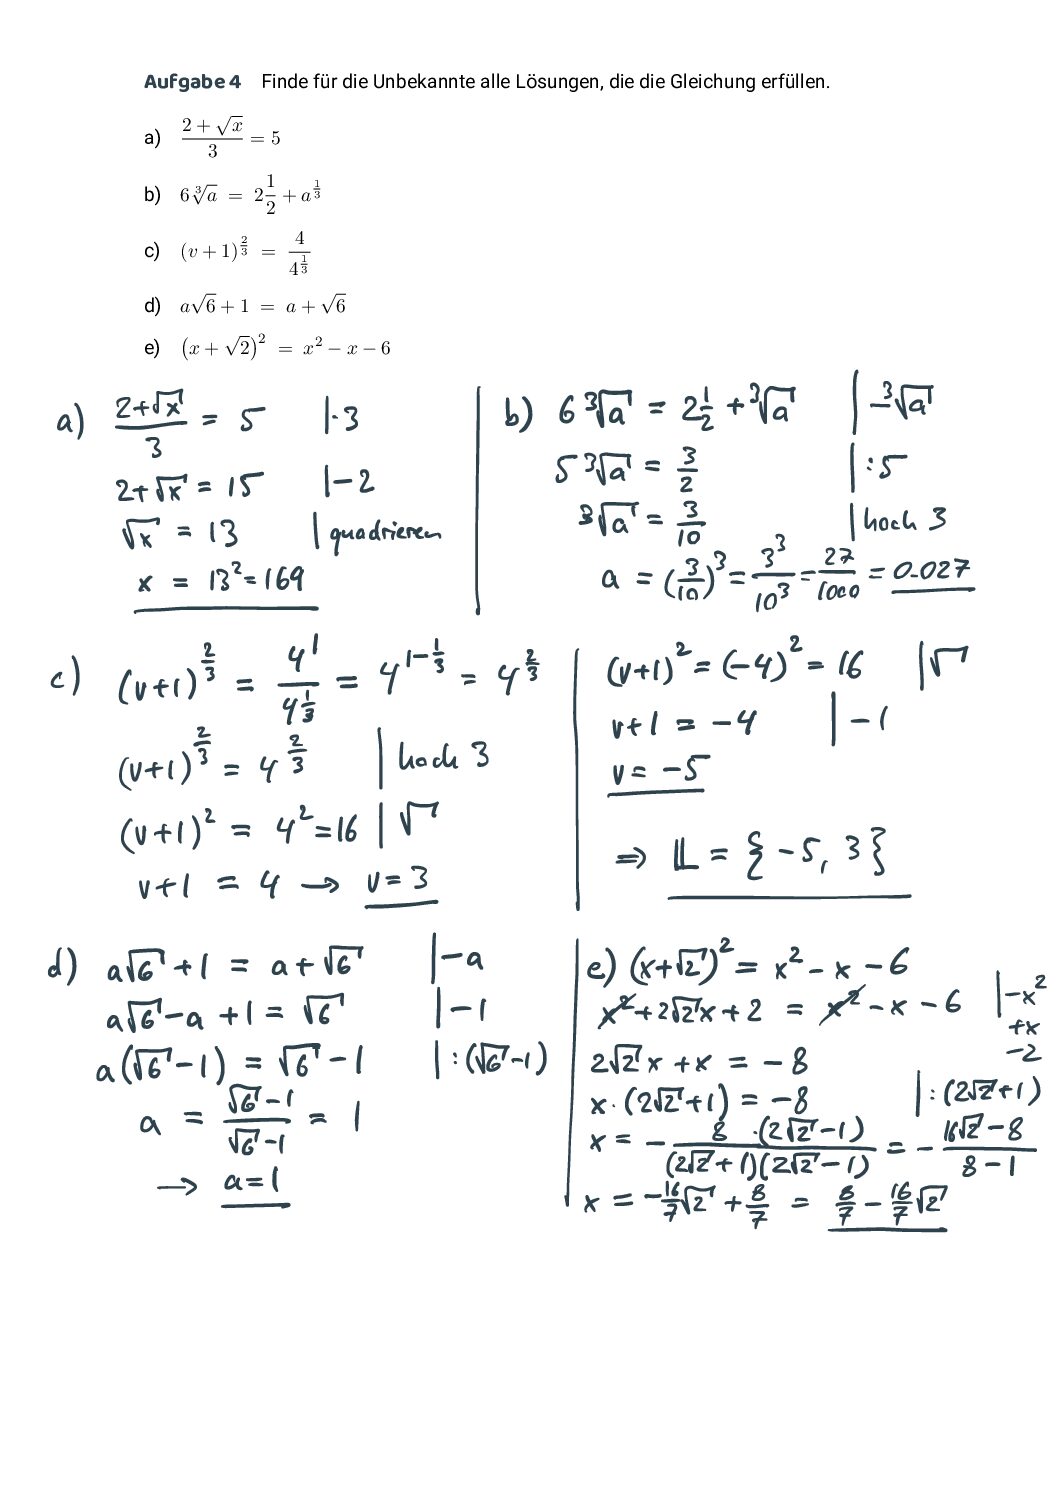 Aufgabe 4 Finde für die Unbekannte alle Lösungen, die die Gleichung erfüllen.
a) (2 + √x)/3 = 5
b) 6∛a = 2 1/2 + a^(1/3)
c) (v + 1)^(2/3) = 4/4^(1/3)
d) a√6 + 1 = a + √6
e) (x + √2)² = x² − x − 6
a) (2+√x)/3 = 5 |·3
2+√x = 15 |−2
√x = 13 | quadrieren
x = 13² = 169
b) 6∛a = 2 1/2 + ∛a | −∛a
5∛a = 3/2 | :5
∛a = 3/10 | hoch 3
a = (3/10)³ = 3³/10³ = 27/1000 = 0.027
c) (v+1)^(2/3) = 4¹/4^(1/3) = 4^(1−1/3) = 4^(2/3)
(v+1)^(2/3) = 4^(2/3) | hoch 3
(v+1)² = 4² = 16 | √
v+1 = 4 → v = 3
(v+1)² = (−4)² = 16 | √
v+1 = −4 | −1
v = −5
⇒ 𝕃 = {−5, 3}
d) a√6 + 1 = a + √6 | −a
a√6 − a + 1 = √6 | −1
a(√6 − 1) = √6 − 1 | :(√6 −1)
a = (√6 −1)/(√6 −1) = 1
→ a = 1
e) (x+√2)² = x² − x − 6
x² + 2√2x + 2 = x² − x − 6 | −x²
+x
−2
2√2 x + x = −8
x·(2√2+1) = −8 | :(2√2+1)
x = − (8·(2√2−1))/((2√2+1)(2√2−1)) = − (16√2−8)/(8−1)
x = −16/7√2 + 8/7 = 8/7 − 16/7√2